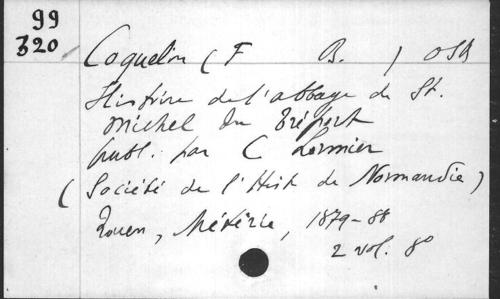 99
320
Coquelin (F B.) OSB
Histoire de l'abbaye de St.
Michel du Tréport
publ. par C Lormier
(Société de l'Hist de Normandie)
Rouen, Métérie, 1879-88
2 vol. 8°